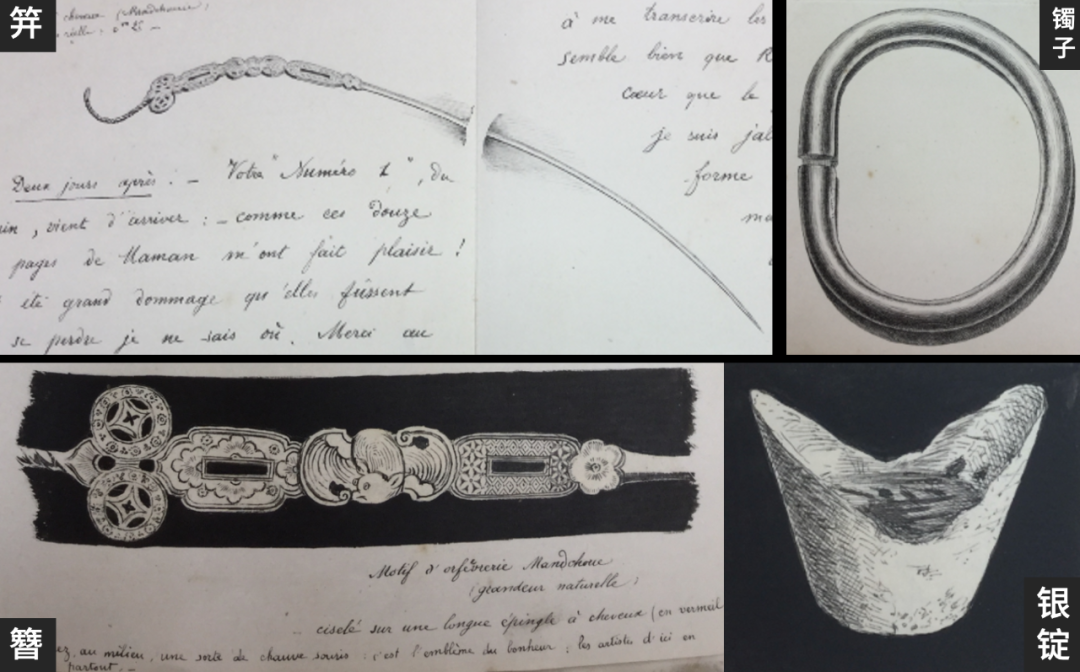 笄
cheveux (Mandchourie)
réelle : 0m 25 —
à me transcrire les
semble bien que R
cœur que le
je suis jal
forme
ma
Deux jours après : — Votre "Numéro 1", du
in, vient d'arriver : — comme ces douze
pages de Maman m'ont fait plaisir !
été grand dommage qu'elles fussent
se perdre je ne sais où. Merci au
镯子
Motif d'orfèvrerie Mandchoue
(grandeur naturelle)
ciselé sur une longue épingle à cheveux (en vermeil
ez, au milieu, une sorte de chauve souris : c'est l'emblème du bonheur ; les artistes d'ici en
partout. —
簪
银锭